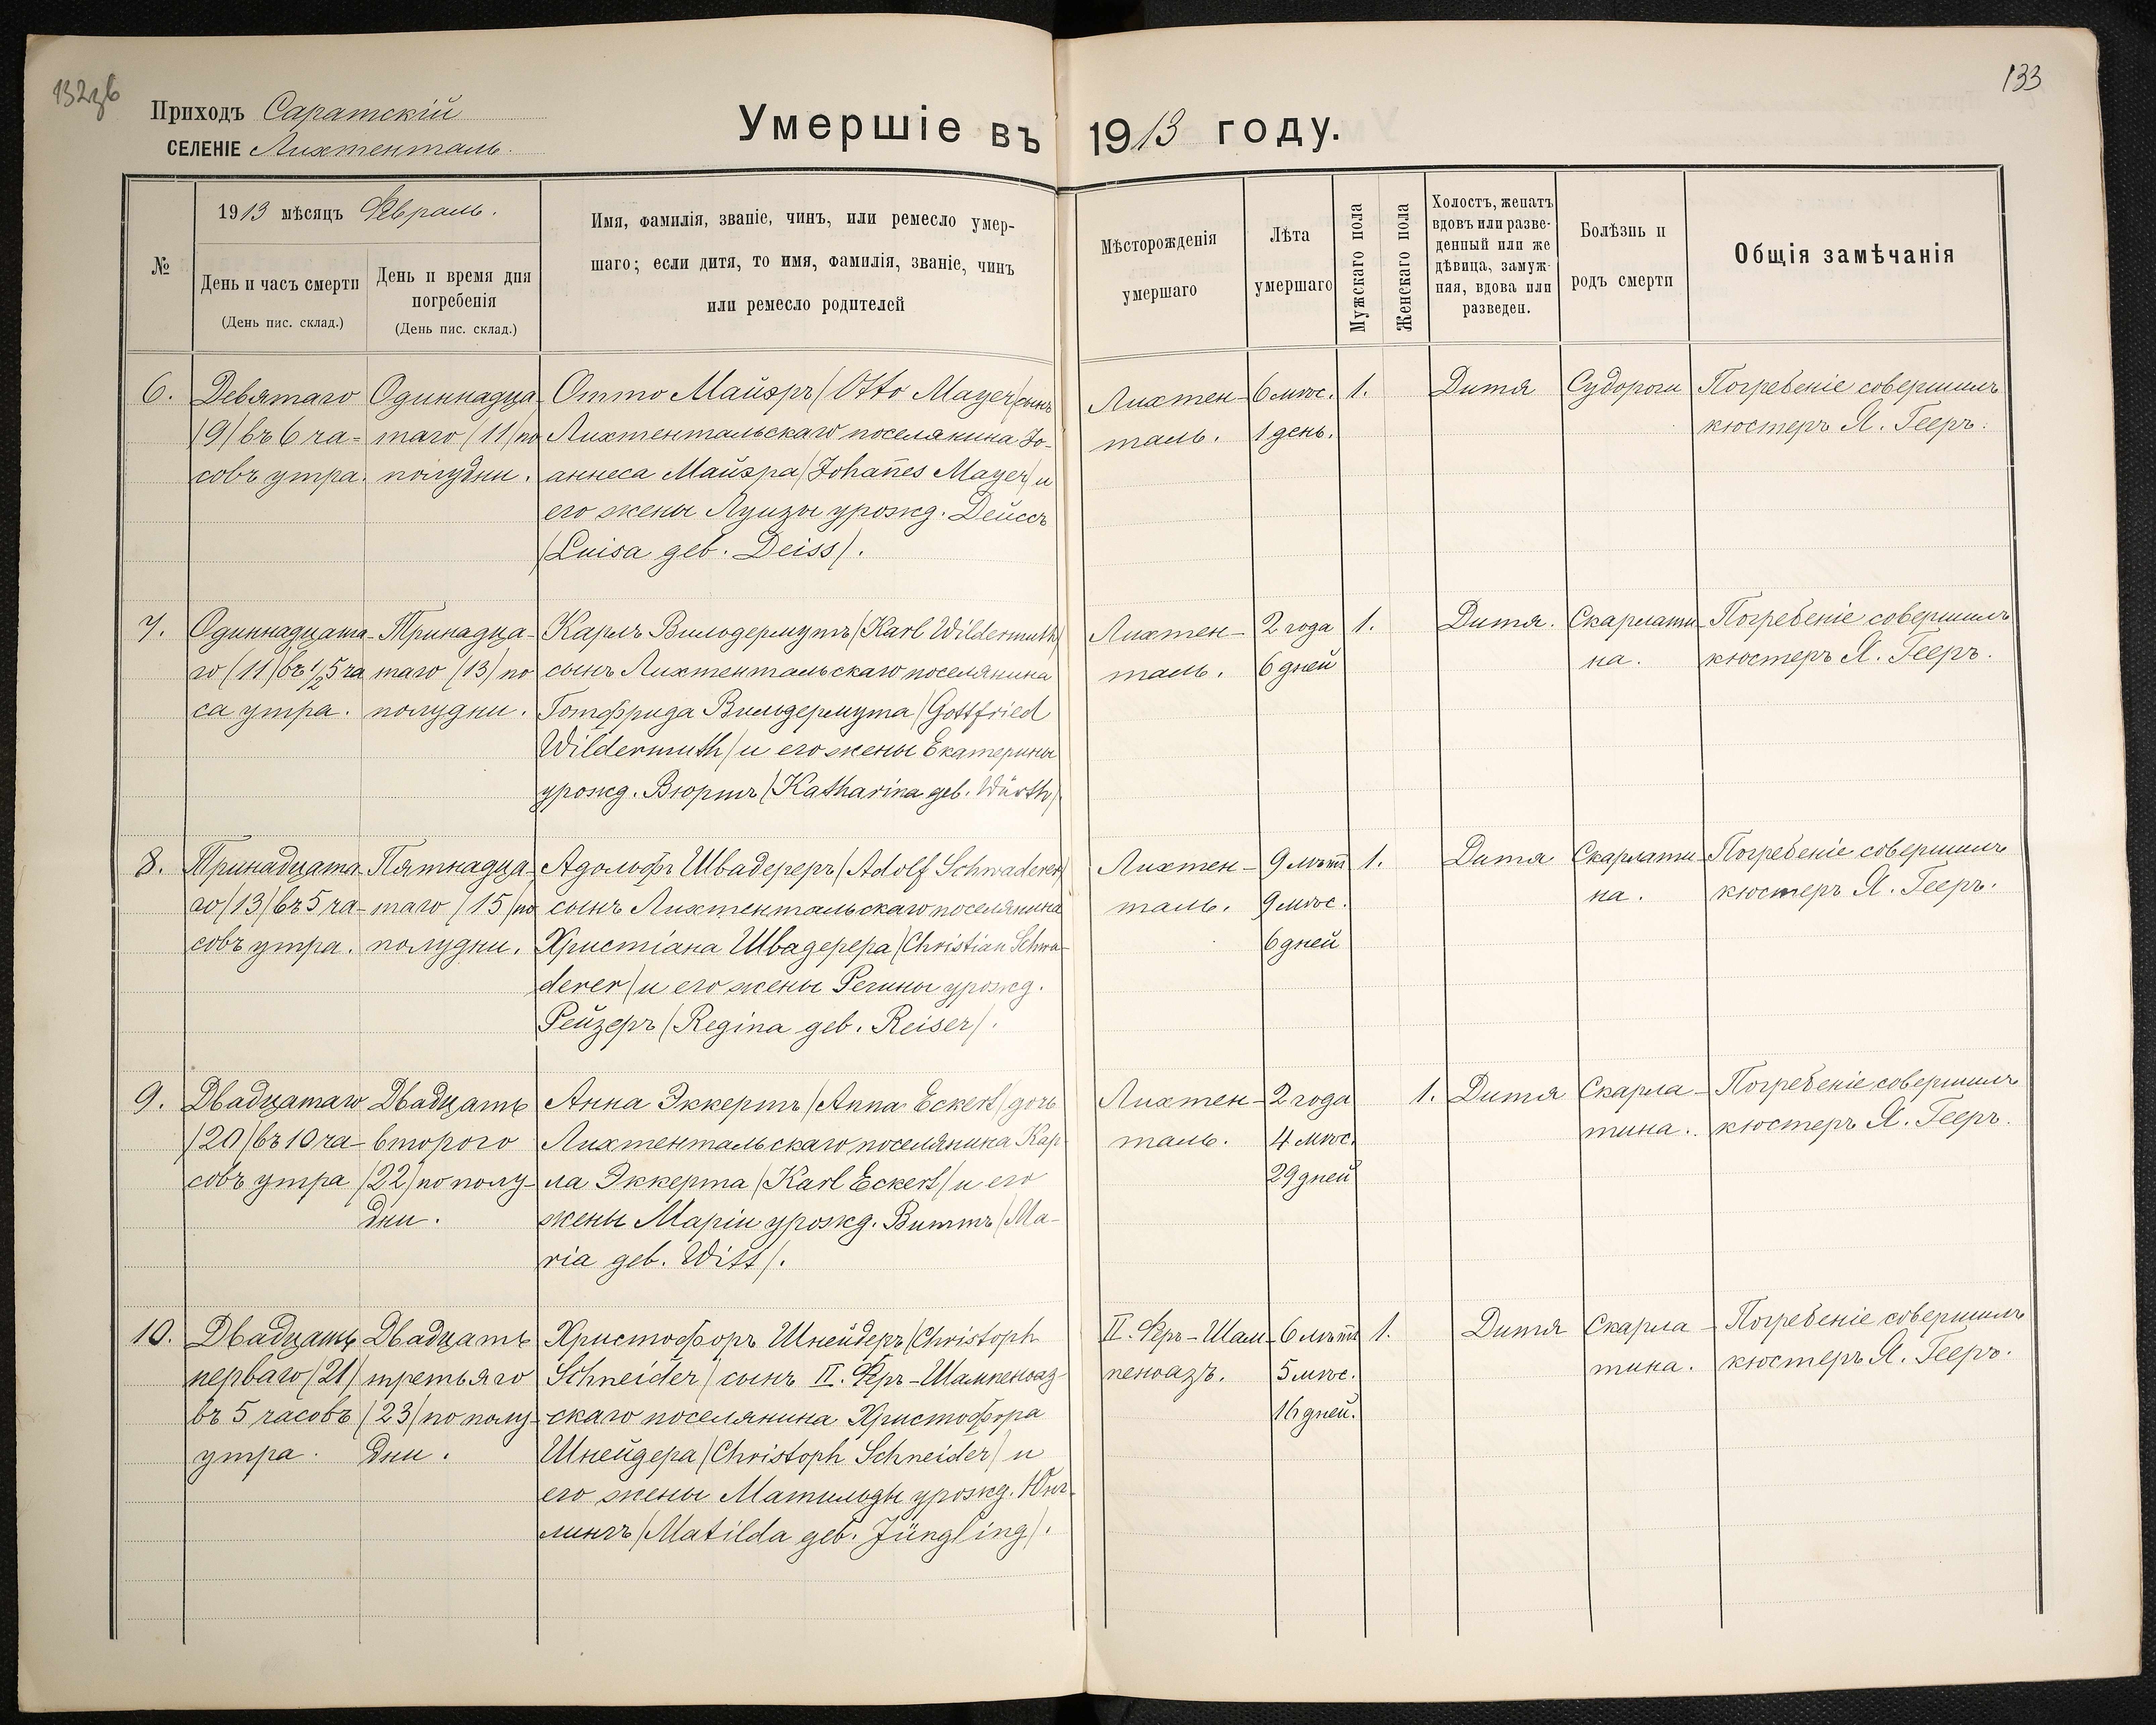 132зв
133
Приходъ Саратскій
СЕЛЕНІЕ Лихтенталь.
Умершіе въ 1913 году.
№
1913 мѣсяцъ Февраль.
День и часъ смерти
(День пис. склад.)
День и время дня
погребенія
(День пис. склад.)
Имя, фамилія, званіе, чинъ, или ремесло умер-
шаго; если дитя, то имя, фамилія, званіе, чинъ
или ремесло родителей
Мѣсторожденія
умершаго
Лѣта
умершаго
Мужскаго пола
Женскаго пола
Холостъ, женатъ
вдовъ или разве-
денный или же
дѣвица, замуж-
няя, вдова или
разведен.
Болѣзнь и
родъ смерти
Общія замѣчанія
6.
Девятаго
/9/ въ 6 ча-
совъ утра.
Одиннадца-
таго /11/ по
полудни.
Отто Майэръ /Otto Mayer/ сынъ
Лихтентальскаго поселянина Іо-
аннеса Майэра /Johan̄es Mayer/ и
его жены Луизы урожд. Дейссъ
/Luisa geb. Deiss/.
Лихтен-
таль.
6 мѣс.
1 день.
1.
Дитя
Судороги
Погребеніе совершилъ
кюстеръ Я. Гееръ.
7.
Одиннадцата-
го (11) въ 1/2 5 ча
са утра.
Тринадца-
таго (13) по
полудни.
Карлъ Вильдермутъ /Karl Wildermuth/
сынъ Лихтентальскаго поселянина
Готфрида Вильдермута /Gottfried
Wildermuth/ и его жены Екатерины
урожд. Вюртъ /Katharina geb. Würth/.
Лихтен-
таль.
2 года
6 дней
1.
Дитя.
Скарлати-
на.
Погребеніе совершилъ
кюстеръ Я. Гееръ.
8.
Тринадцата-
го /13/ въ 5 ча-
совъ утра.
Пятнадца-
таго /15/ по
полудни.
Адольфъ Швадереръ /Adolf Schwaderer/
сынъ Лихтентальскаго поселянина
Христіана Швадерера /Christian Schwa-
derer/ и его жены Регины урожд.
Рейзеръ /Regina geb. Reiser/.
Лихтен-
таль.
9 лѣтъ
9 мѣс.
6 дней
1.
Дитя
Скарлати-
на.
Погребеніе совершилъ
кюстеръ Я. Гееръ.
9.
Двадцатаго
/20/ въ 10 ча-
совъ утра
Двадцать
второго
/22/ по полу-
дни.
Анна Эккертъ /Anna Eckert/ дочь
Лихтентальскаго поселянина Кар-
ла Эккерта /Karl Eckert/ и его
жены Маріи урожд. Виттъ /Ma-
ria geb. Witt/.
Лихтен-
таль.
2 года
4 мѣс.
29 дней
1.
Дитя
Скарла-
тина.
Погребеніе совершилъ
кюстеръ Я. Гееръ.
10.
Двадцать
перваго /21/
въ 5 часовъ
утра.
Двадцать
третьяго
/23/ по полу-
дни.
Христофоръ Шнейдеръ /Christoph
Schneider/ сынъ II. Феръ-Шампенуаз-
скаго поселянина Христофора
Шнейдера /Christoph Schneider/ и
его жены Матильды урожд. Юнг-
лингъ /Matilda geb. Jüngling/.
II. Феръ-Шам-
пенуазъ.
6 лѣтъ
5 мѣс.
16 дней.
1.
Дитя
Скарла-
тина.
Погребеніе совершилъ
кюстеръ Я. Гееръ.